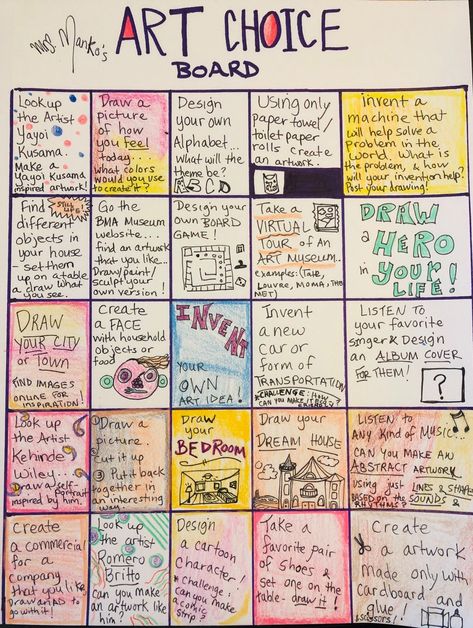 Mrs. Manko's
ART CHOICE
BOARD
Look up
the Artist
Yayoi
Kusama.
Make a
Yayoi Kusama
inspired artwork!
Draw a
picture
of how
you feel
today...
what colors
would you use
to create it?
Design
your own
Alphabet...
What will the
theme be?
A B C D
Using only
paper towel/
toilet paper
rolls create
an artwork.
Invent a
machine that
will help solve a
Problem in the
World. What is
the problem, & how
will your invention help?
Post your drawing!
Find
STILL LIFE
different
objects in
your house
- set them
up on a table
& draw what
you see.
Go the
BMA Museum
website....
find an artwork
that you like...
Draw/paint/
sculpt your
own version!
Design your
own BOARD
GAME!
Take a
VIRTUAL
TOUR of An
ART MUSEUM.
examples: (Tate,
Louvre, MOMA, THE
MET)
DRAW
a
HERO
in
YOUR
LIFE!
DRAW
YOUR CITY
or TOWN
FIND IMAGES
ONLINE FOR
INSPIRATION!
Create
a FACE
with household
objects or
food
INVENT
YOUR
OWN
ART IDEA!
Invent
a new
car or
form of
TRANSPORTATION
*CHALLENGE: HOW
CAN YOU MAKE IT ECO
FRIENDLY?
LISTEN TO
your favorite
singer & Design
an ALBUM COVER
FOR THEM!
?
Look up
the Artist
Kehinde
Wiley...
Draw a self-
portrait
inspired by him.
① Draw a
picture...
cut it up
② Put it back
together in
an interesting
way.
Draw
your
BEDROOM
Draw your
DREAM HOUSE
LISTEN TO
Any Kind of MUSIC...
CAN YOU MAKE AN
ABSTRACT artwork
using just LINES & SHAPES
BASED on the SOUNDS &
RHYTHMS?
Create
a commercial
for a
company
that you like
Draw an AD
to go with it!
Look up
the artist
Romero
Britto
Can you make
an artwork like
him?
Design
a cartoon
Character!
*challenge:
can you make
a comic
strip?
Take a
favorite pair
of shoes &
set one on
the table - draw it!
Create
a artwork
made only with
Cardboard and
glue!
& SCISSORS!